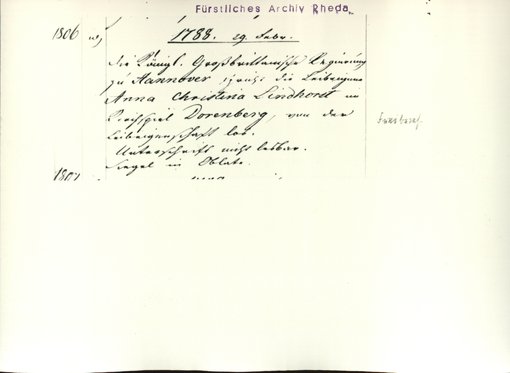 Fürstliches Archiv Rheda
1806
1788. 29. Febr.
Die Königl. Großbrittanische Regierung
zu Hannover spricht die Leibeigene
Anna Christina Lindhorst im
Kirchspiel Dorenberg, von der
Leibeigenschaft los.
Unterschrift nicht lesbar.
Siegel in Oblate.
Freibrief.
1807